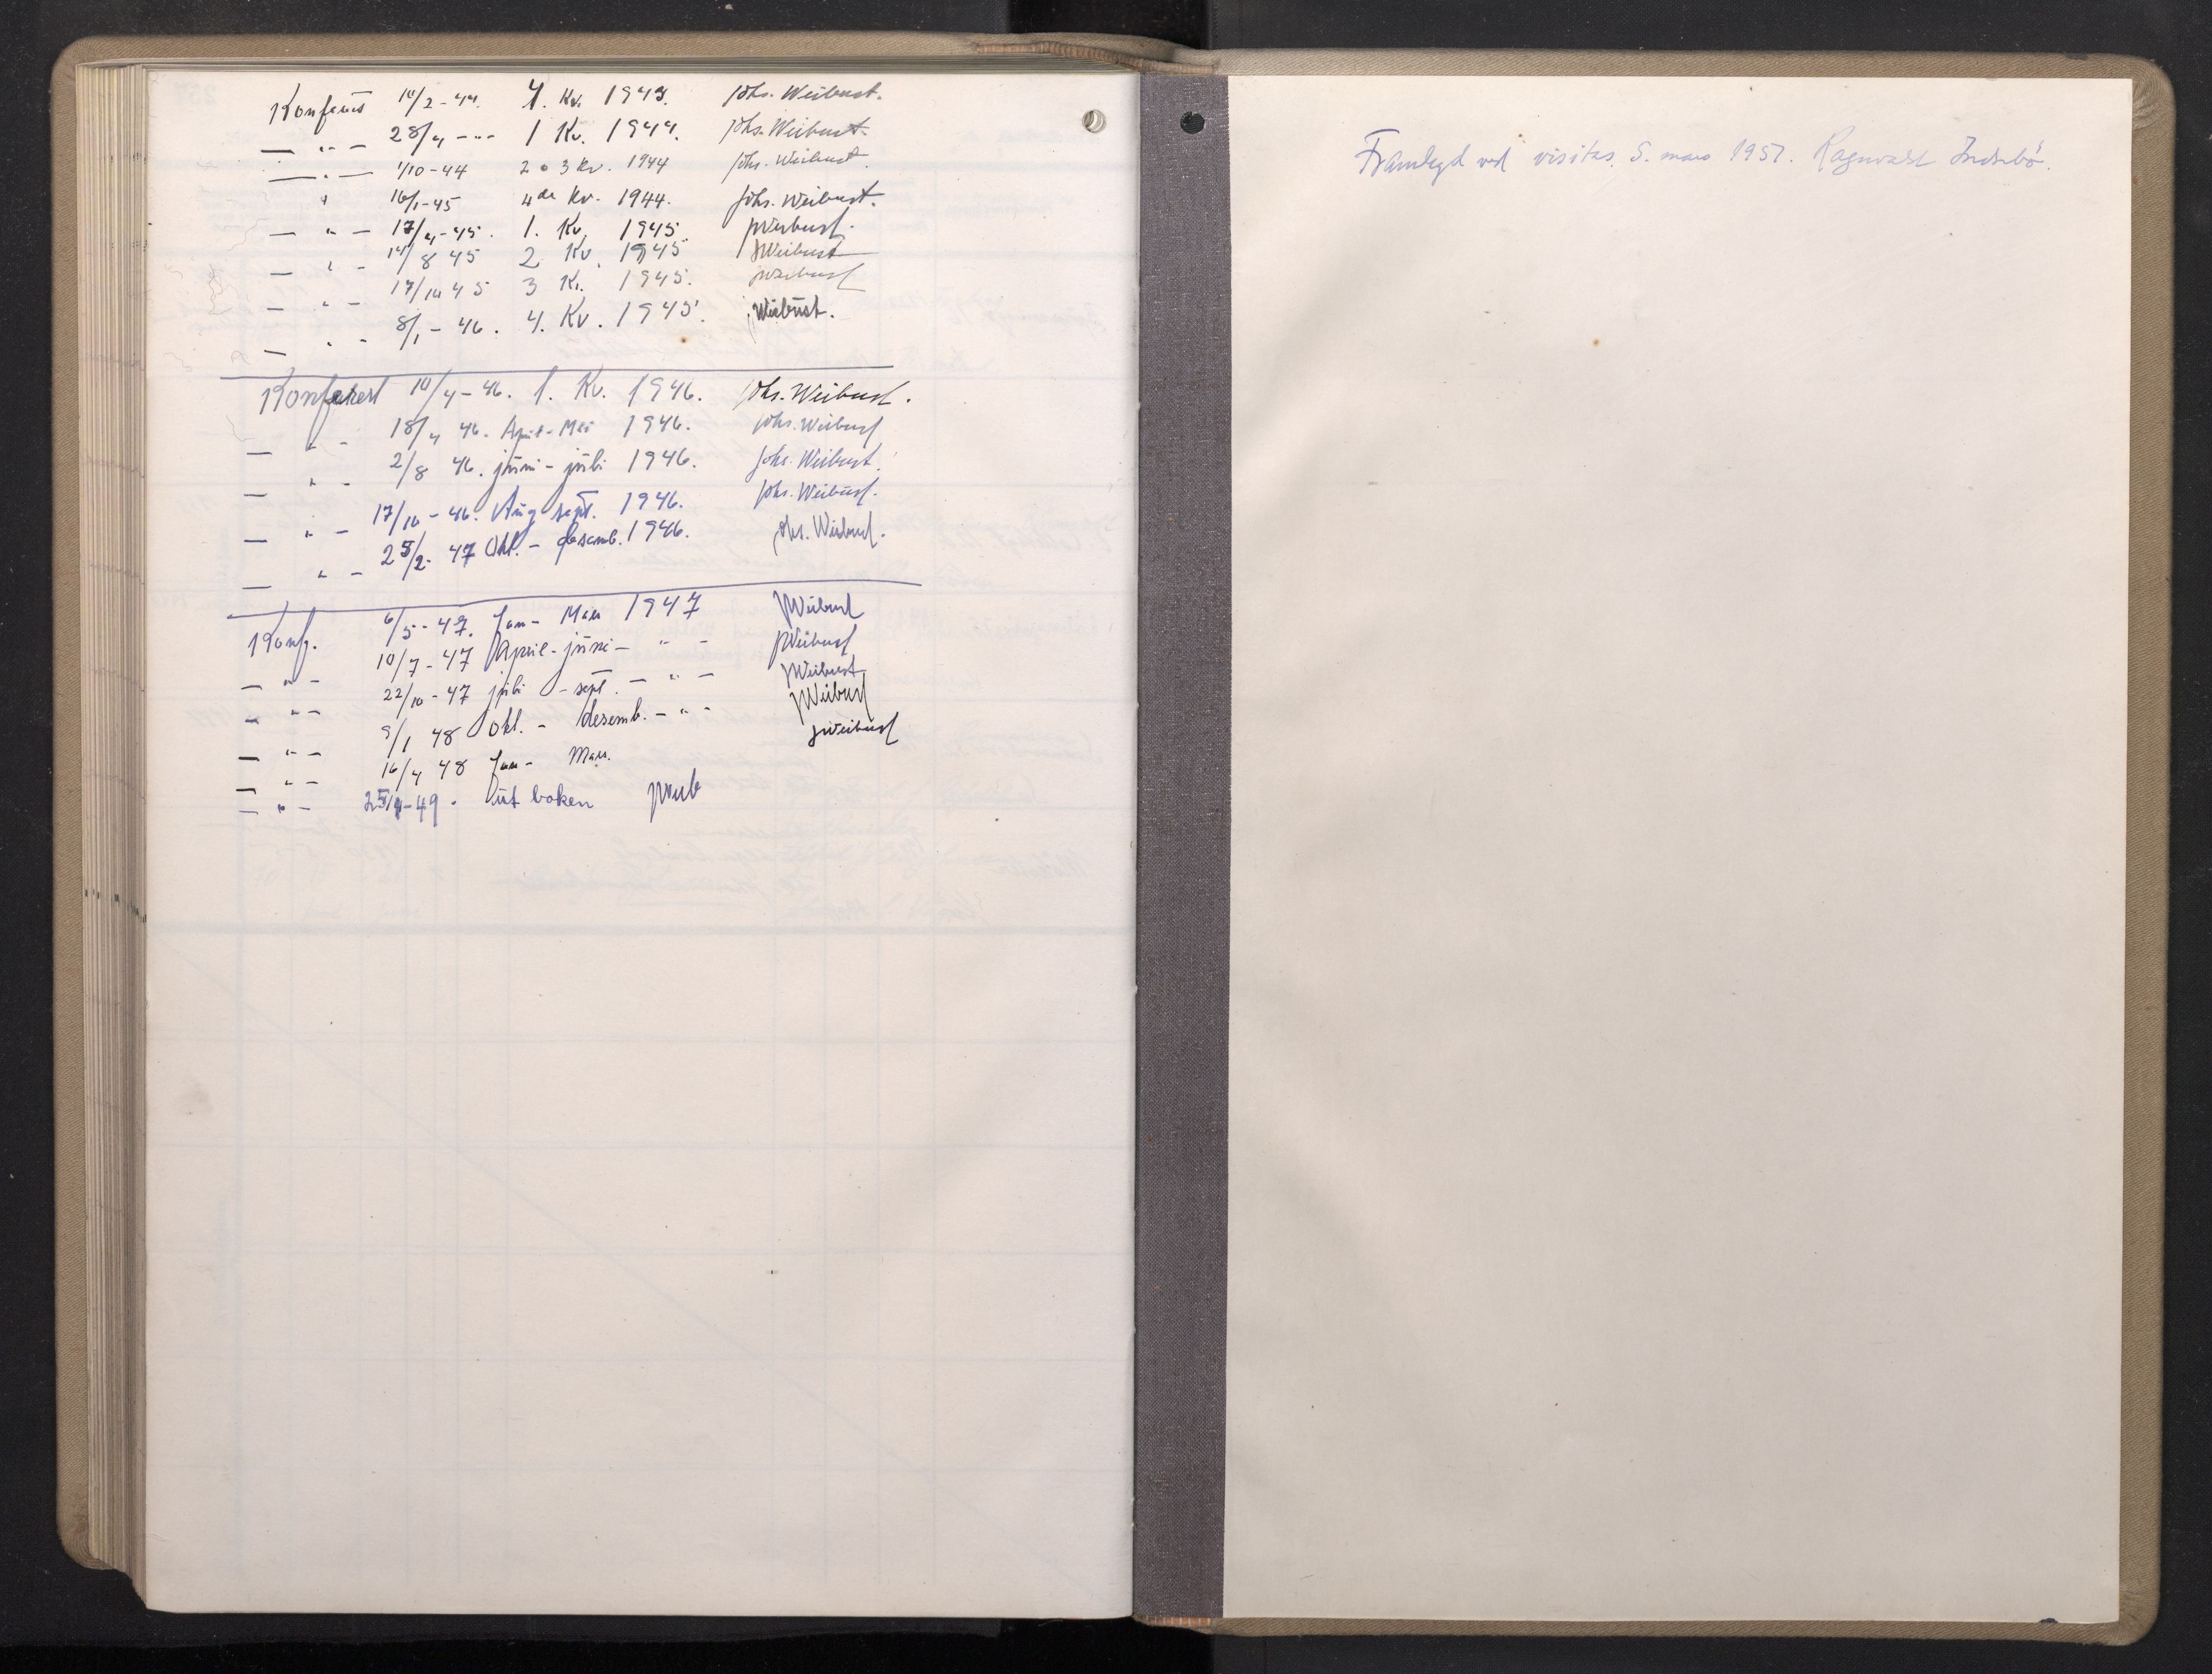 Konferert 10/2-44. 4. Kv. 1943. Johs. Weibust.
— " — 28/4 -"- 1 Kv. 1944. Johs. Weibust.
— " — 1/10-44 2 o 3 Kv. 1944 Johs. Weibust.
" 16/1-45 4de Kv. 1944. Johs. Weibust.
— " — 17/4-45. 1. Kv. 1945 JWeibust.
— " — 14/8 45 2 Kv. 1945 JWeibust
— " — 17/10 45 3 Kv. 1945. JWeibust
— " — 8/1-46. 4. Kv. 1945. JWeibust.
Konferert 10/4-46. 1. Kv. 1946. Johs. Weibust.
— " — 18/4 46. April-Mai 1946. Johs. Weibust
— " — 2/8 46. juni-juli 1946. Johs. Weibust.
— " — 17/10-46. Aug sept. 1946. Johs. Weibust.
— " — 25/2-47 Okt. - desemb. 1946. Johs. Weibust.
Konf. 6/5-47. Jan- Mars 1947 JWeibust
— " — 10/7-47 April-juni — " — JWeibust
— " — 22/10-47 juli - sept. — " — JWeibust
— " — 9/1 48 Okt. - desemb. — " — JWeibust
— " — 16/4 48 Jan- Mars. JWeibust
— " — -49. ut boken JWeib
Framlagd ved visitas 5. mars 1957. Ragnvald Indrebö.